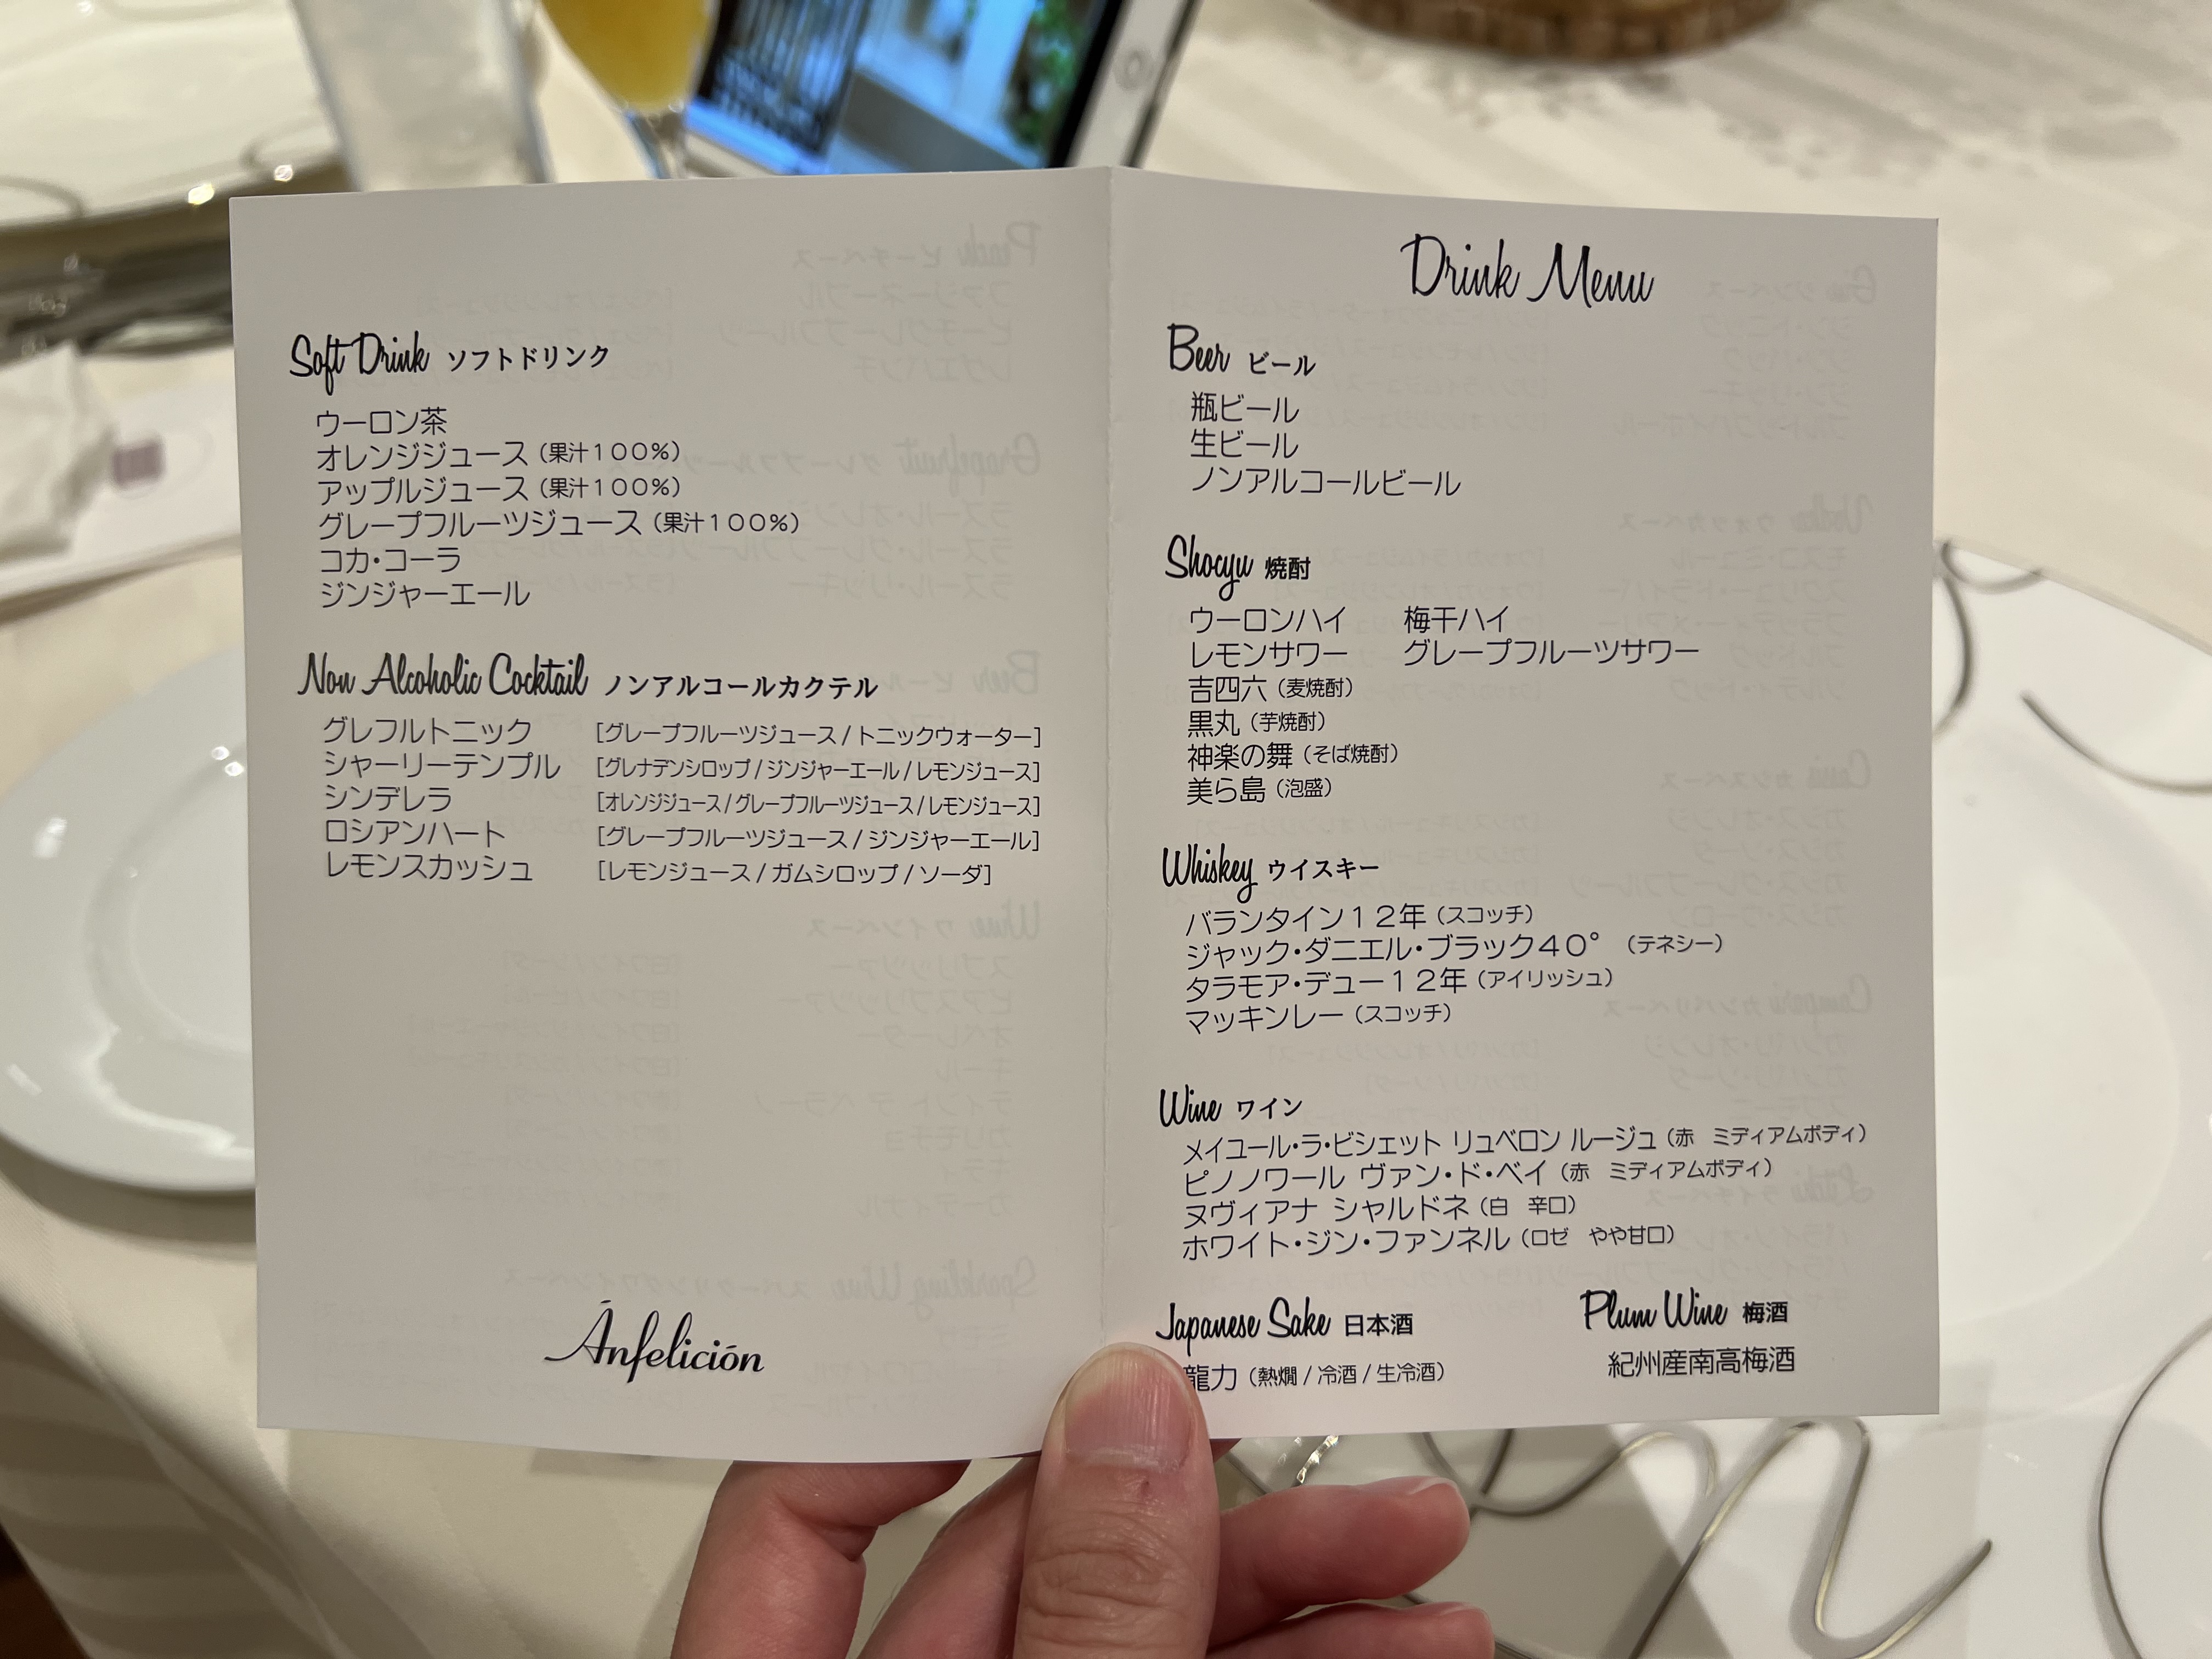 Soft Drink ソフトドリンク
ウーロン茶
オレンジジュース（果汁１００％）
アップルジュース（果汁１００％）
グレープフルーツジュース（果汁１００％）
コカ・コーラ
ジンジャーエール
Non Alcoholic Cocktail ノンアルコールカクテル
グレフルトニック [グレープフルーツジュース / トニックウォーター]
シャーリーテンプル [グレナデンシロップ / ジンジャーエール / レモンジュース]
シンデレラ [オレンジジュース / グレープフルーツジュース / レモンジュース]
ロシアンハート [グレープフルーツジュース / ジンジャーエール]
レモンスカッシュ [レモンジュース / ガムシロップ / ソーダ]
Ánfelición
Drink Menu
Beer ビール
瓶ビール
生ビール
ノンアルコールビール
Shocyu 焼酎
ウーロンハイ 梅干ハイ
レモンサワー グレープフルーツサワー
吉四六（麦焼酎）
黒丸（芋焼酎）
神楽の舞（そば焼酎）
美ら島（泡盛）
Whiskey ウイスキー
バランタイン１２年（スコッチ）
ジャック・ダニエル・ブラック４０°（テネシー）
タラモア・デュー１２年（アイリッシュ）
マッキンレー（スコッチ）
Wine ワイン
メイユール・ラ・ビシェット リュベロン ルージュ（赤 ミディアムボディ）
ピノノワール ヴァン・ド・ベイ（赤 ミディアムボディ）
ヌヴィアナ シャルドネ（白 辛口）
ホワイト・ジン・ファンネル（ロゼ やや甘口）
Japanese Sake 日本酒
龍力（熱燗 / 冷酒 / 生冷酒）
Plum Wine 梅酒
紀州産南高梅酒